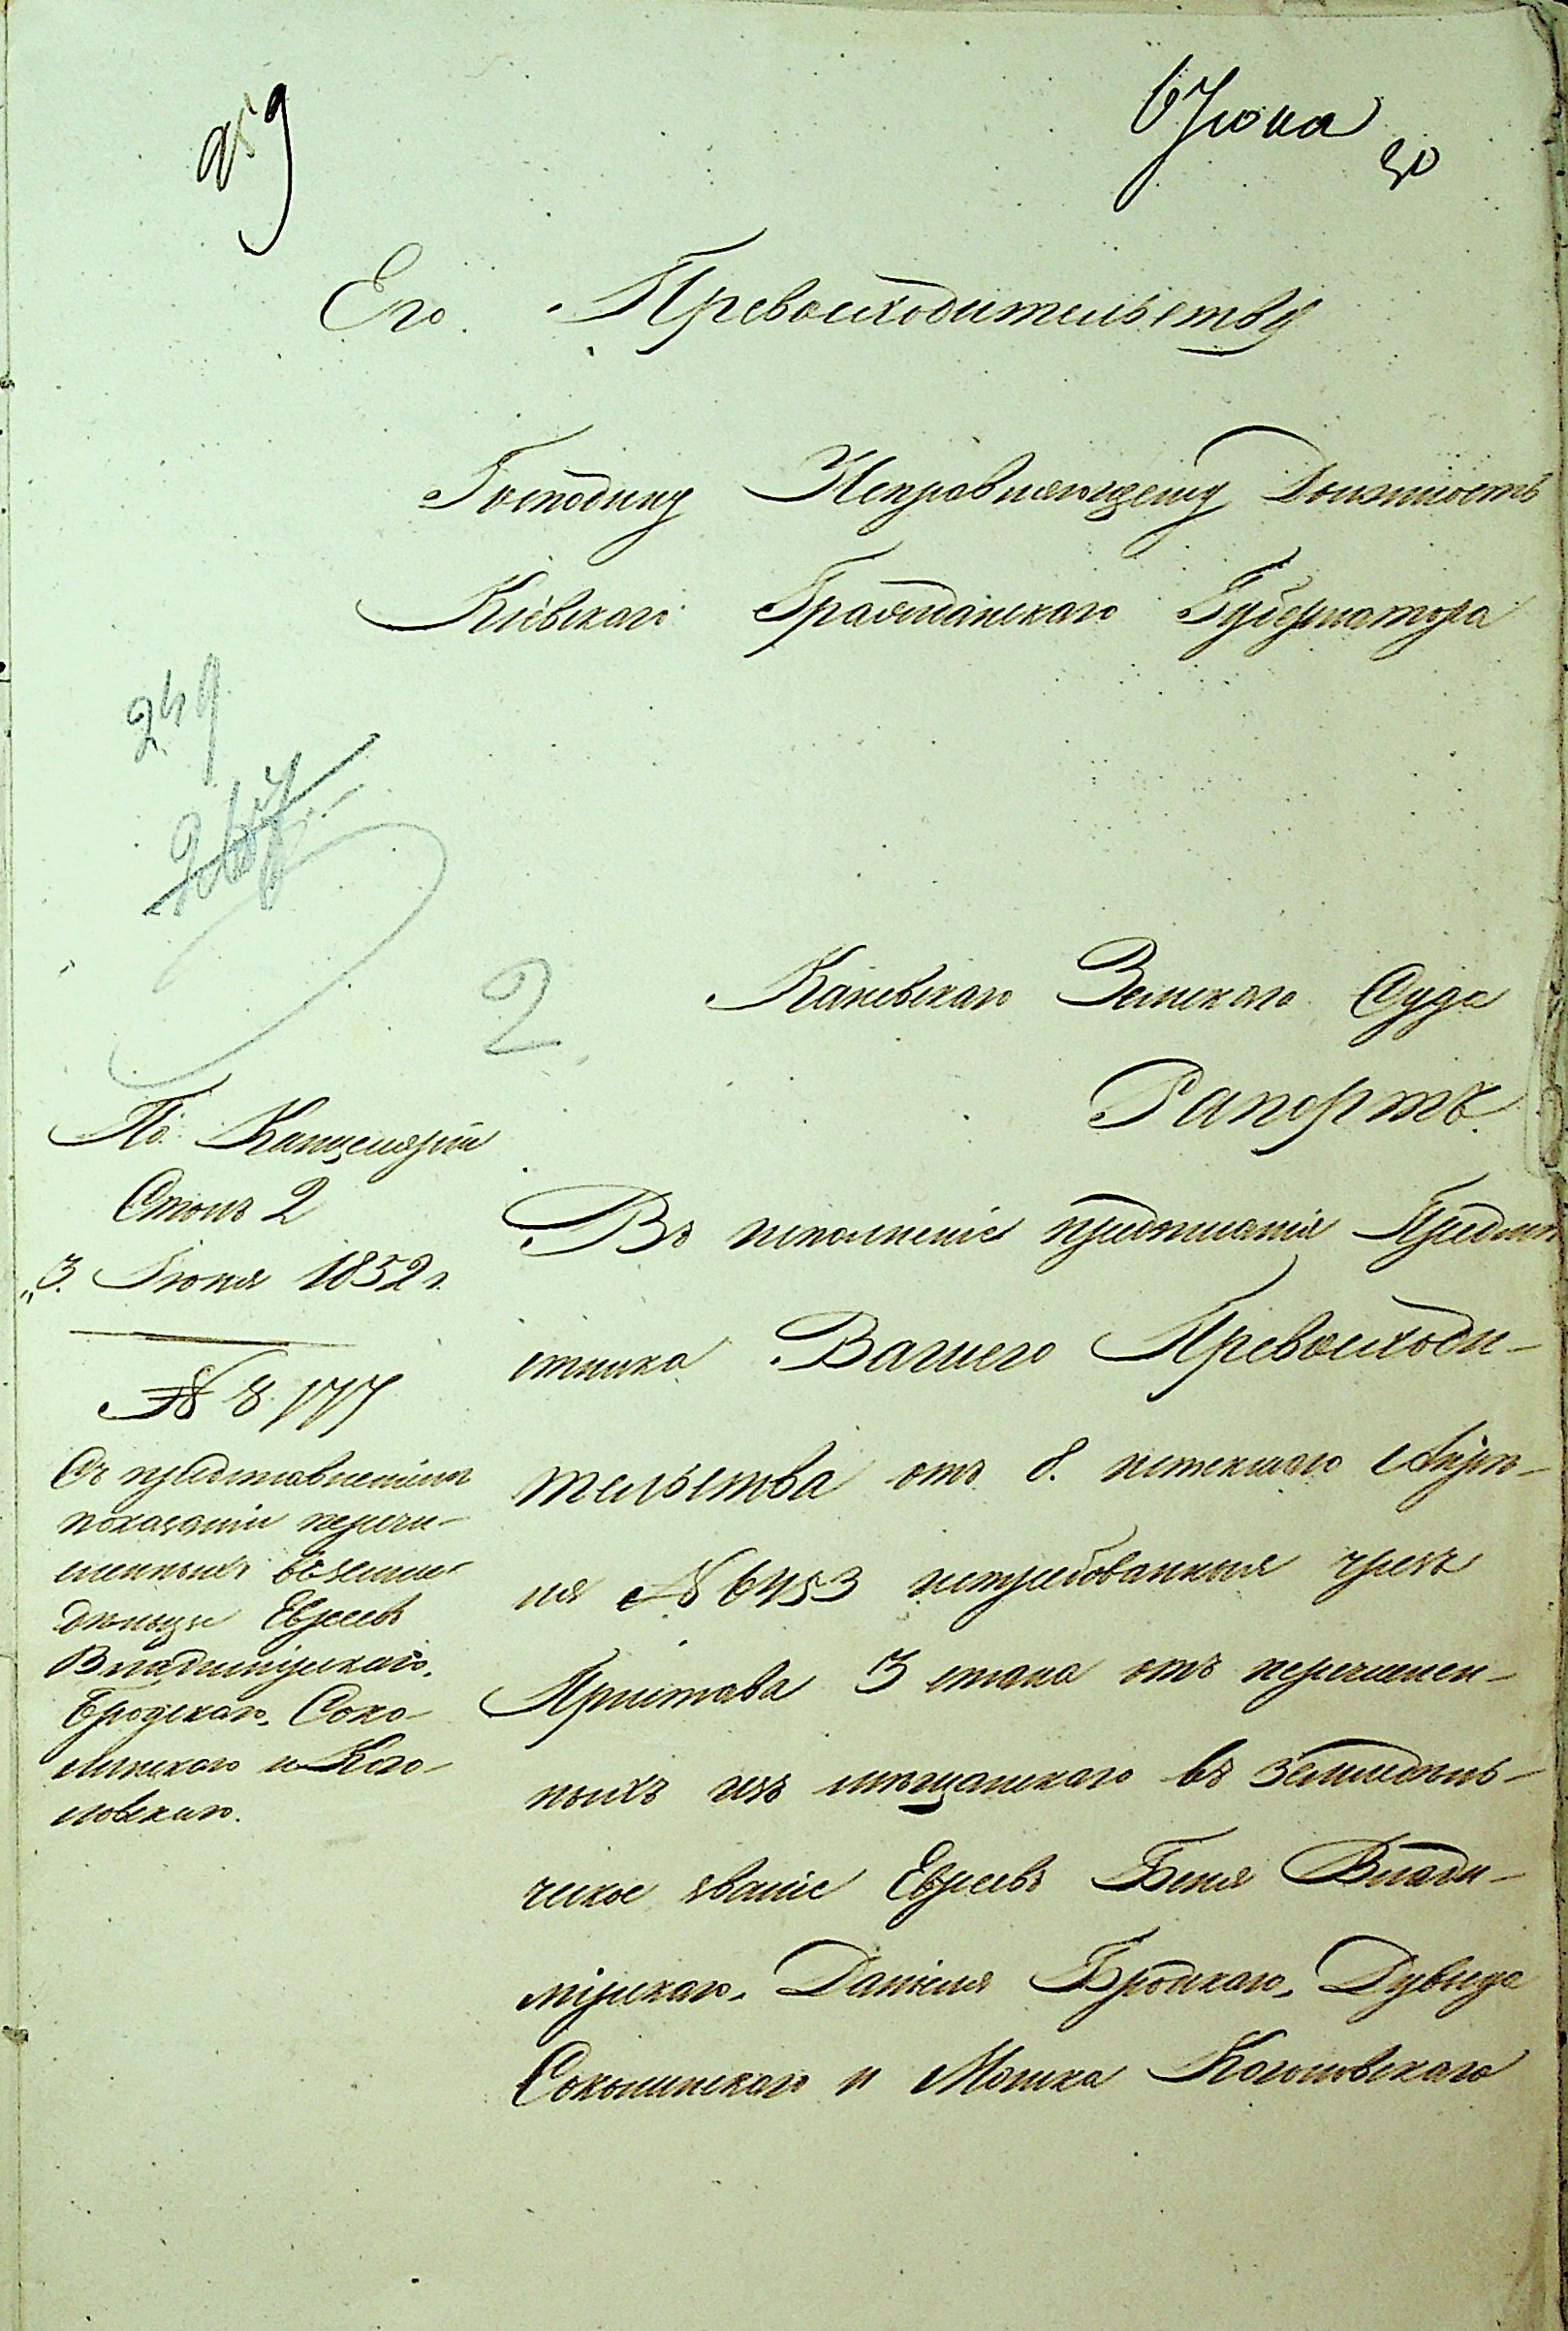 6 Июня
30
Его Превосходительству
Господину Исправляющему Должность
Кіевскаго Гражданскаго Губернатора
249
2
Каневскаго Земскаго Суда
Рапортъ.
По Канцеляріи
Столъ 2
„3. Іюня 1852 г.
№ 8177
Съ представленіемъ
показаній перечи-
сленныхъ въ земле
дѣльцы Евреевъ
Владимірскаго,
Бродскаго, Соко-
линскаго и Кого-
новскаго.
Во исполненіе предписанія Предмѣ
стника Вашего Превосходи-
тельства отъ 8. истекшаго Апрѣ-
ля № 6453 истребованныя чрезъ
Пристава 3 стана отъ перечислен-
ныхъ изъ мѣщанскаго въ земледѣль-
ческое званіе Евреевъ Беня Влади-
мірскаго, Даніеля Бродскаго, Дувида
Соколинскаго и Мошка Когоновскаго